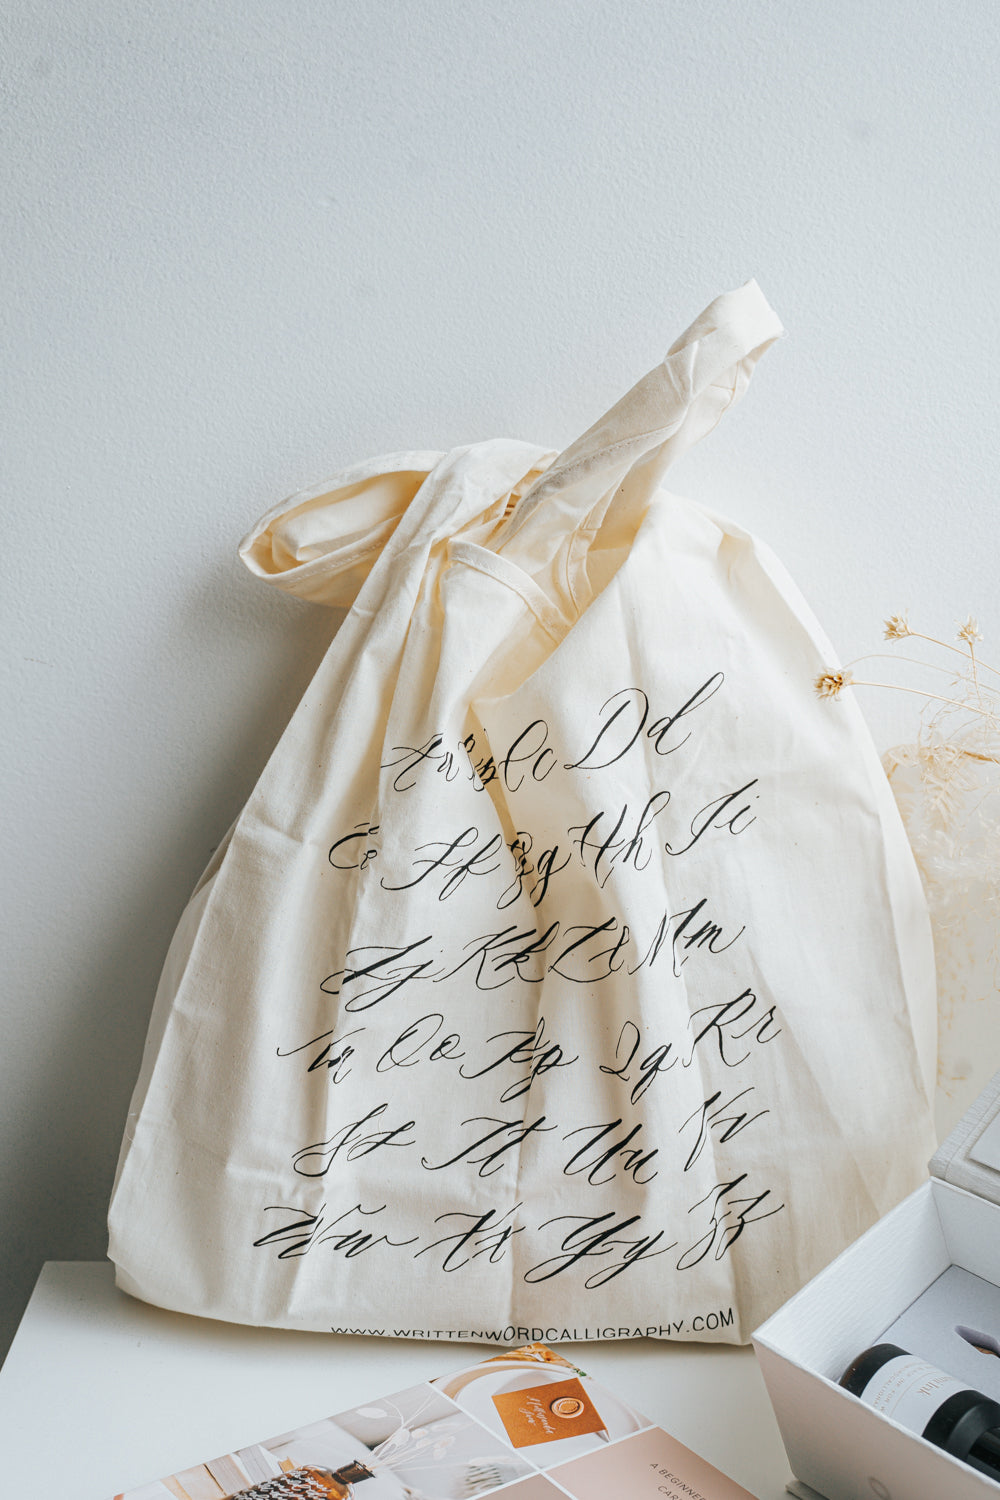 Aa Bb Cc Dd
Ee Ff Gg Hh Ii
Jj Kk Ll Mm
Nn Oo Pp Qq Rr
Ss Tt Uu Vv
Ww Xx Yy Zz
WWW.WRITTENWORDCALLIGRAPHY.COM
A BEGINNER